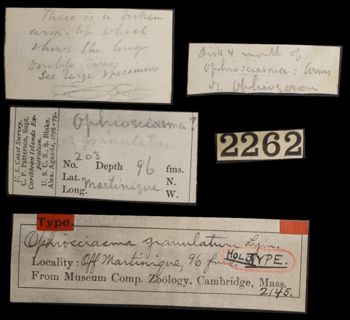 There is a broken
arm-tip which
shows the long
double tones
See large specimens
Disk & mouth of
Ophiosciasma: arms
of Ophioscron
U.S. Coast Survey,
C. P. Patterson, Supt.
Caribbean Islands Ex-
ploration.
U. S. C. S. S. Blake,
Alex. Agassiz, 1878-79.
Ophiosciasma?
granulatum
No. 203 Depth 96 fms.
Lat. N.
Long. Martinique W.
2262
Type.
Ophiosciasma granulatum Lym.
Locality: Off Martinique, 96 fms. HOLOTYPE.
From Museum Comp. Zoology, Cambridge, Mass.
2145.